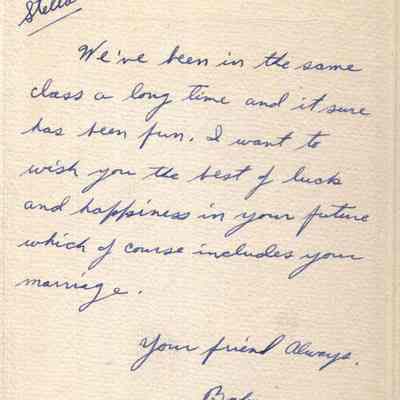 Stella
We've been in the same
class a long time and it sure
has been fun. I want to
wish you the best of luck
and happiness in your future
which of course includes your
marriage.
Your friend Always,